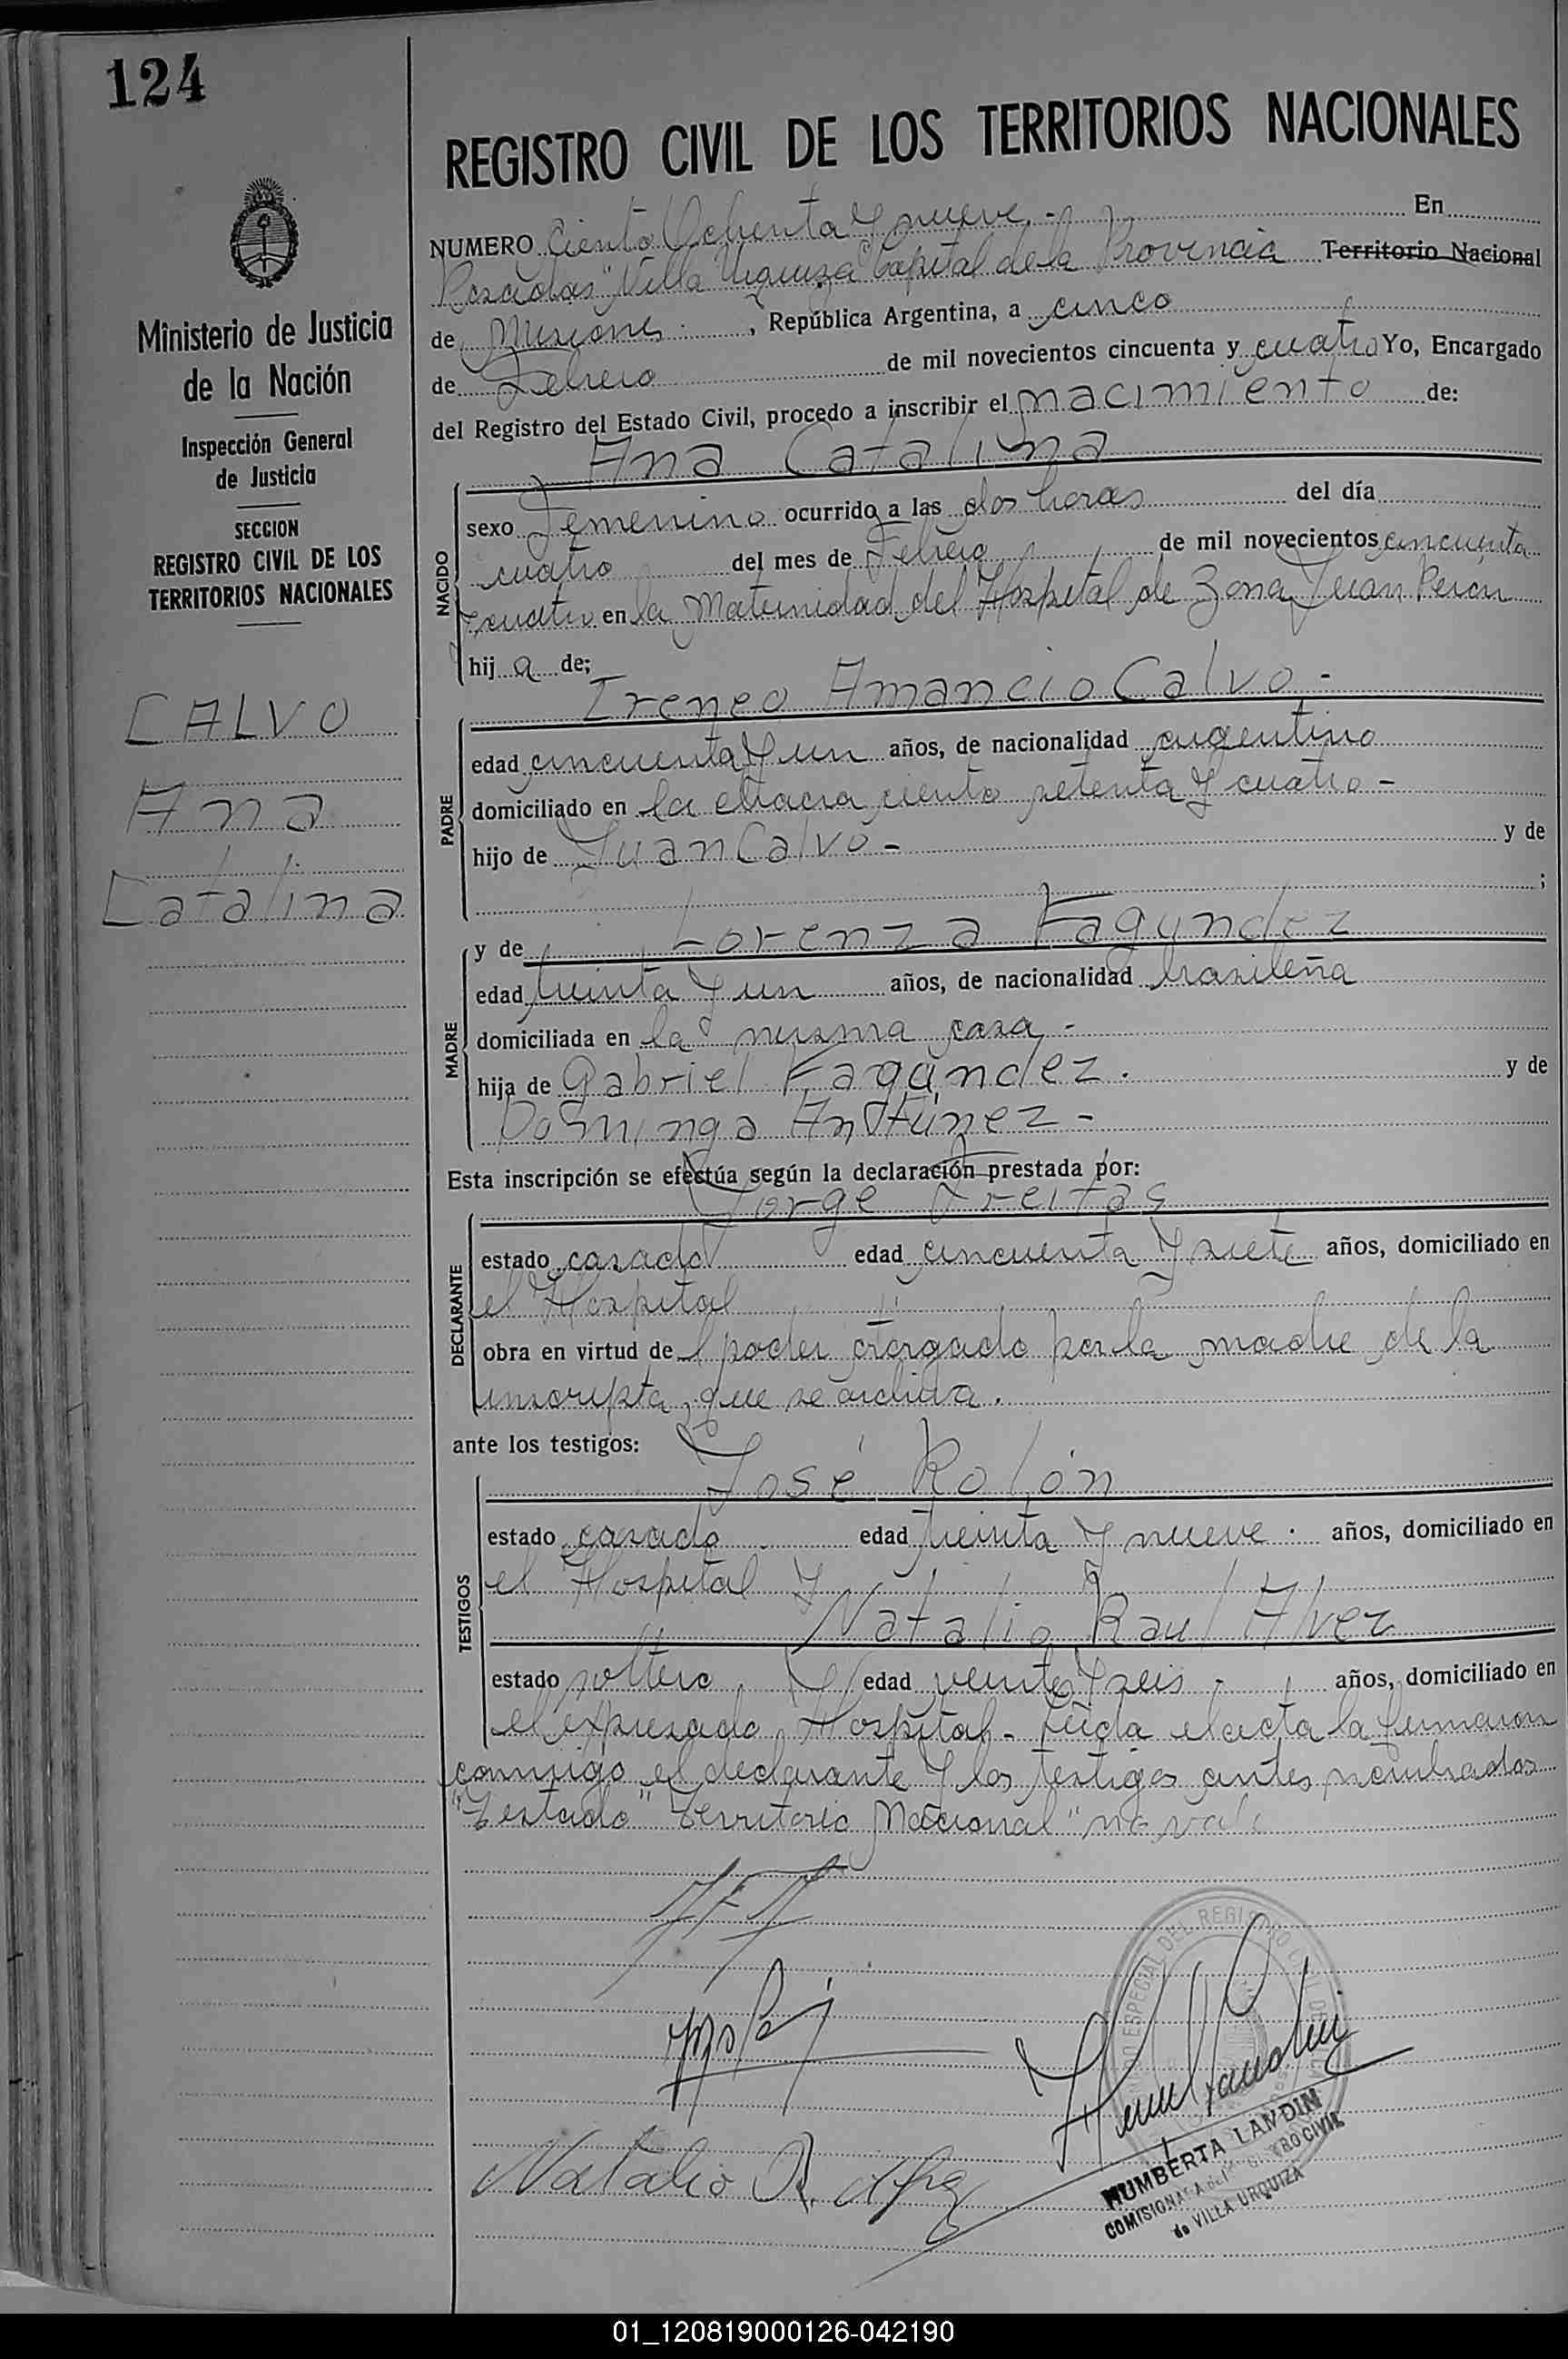 124
REGISTRO CIVIL DE LOS TERRITORIOS NACIONALES
Ministerio de Justicia
de la Nación
Inspección General
de Justicia
SECCION
REGISTRO CIVIL DE LOS
TERRITORIOS NACIONALES
CALVO
Ana
Catalina
NUMERO Ciento Ochenta y nueve.- En
Posadas "Villa Urquiza" Capital de la Provincia Territorio Nacional
de Misiones , República Argentina, a cinco
de Febrero de mil novecientos cincuenta y cuatro Yo, Encargado
del Registro del Estado Civil, procedo a inscribir el nacimiento de:
Ana Catalina
NACIDO
sexo Femenino ocurrido a las dos horas del día
cuatro del mes de Febrero de mil novecientos cincuenta
y cuatro en la Maternidad del Hospital de Zona Juan Perón
hij a de:
Ireneo Amancio Calvo -
PADRE
edad cincuenta y un años, de nacionalidad argentino
domiciliado en la chacra ciento setenta y cuatro -
hijo de Juan Calvo - y de
;
MADRE
y de Lorenza Fagundez
edad treinta y un años, de nacionalidad brasileña
domiciliada en la misma casa -
hija de Gabriel Fagúndez. y de
Dominga Antúnez -
Esta inscripción se efectúa según la declaración prestada por:
Jorge Freitas
DECLARANTE
estado casado edad cincuenta y siete años, domiciliado en
el Hospital
obra en virtud de l poder otorgado por la madre de la
inscripta, que se archiva.
ante los testigos:
José Rolón
TESTIGOS
estado casado edad treinta y nueve . años, domiciliado en
el Hospital y
Natalio Raul Alvez
estado soltero edad veinte y seis - años, domiciliado en
el expresado Hospital - Leída el acta la firmaron
conmigo el declarante y los testigos antes nombrados
"Testado" Territorio Nacional" no vale
Natalio R. Alvez
HUMBERTA LANDIN
COMISIONADA del REGISTRO CIVIL
de VILLA URQUIZA
01_120819000126-042190